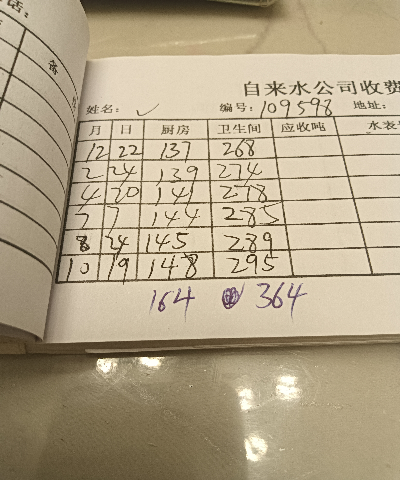 话:
备
自来水公司收费
姓名: 编号: 109598 地址:
月 日 厨房 卫生间 应收吨 水表
12 22 137 268
2 24 139 274
4 20 141 278
7 7 144 285
8 24 145 289
10 19 148 295
164 364